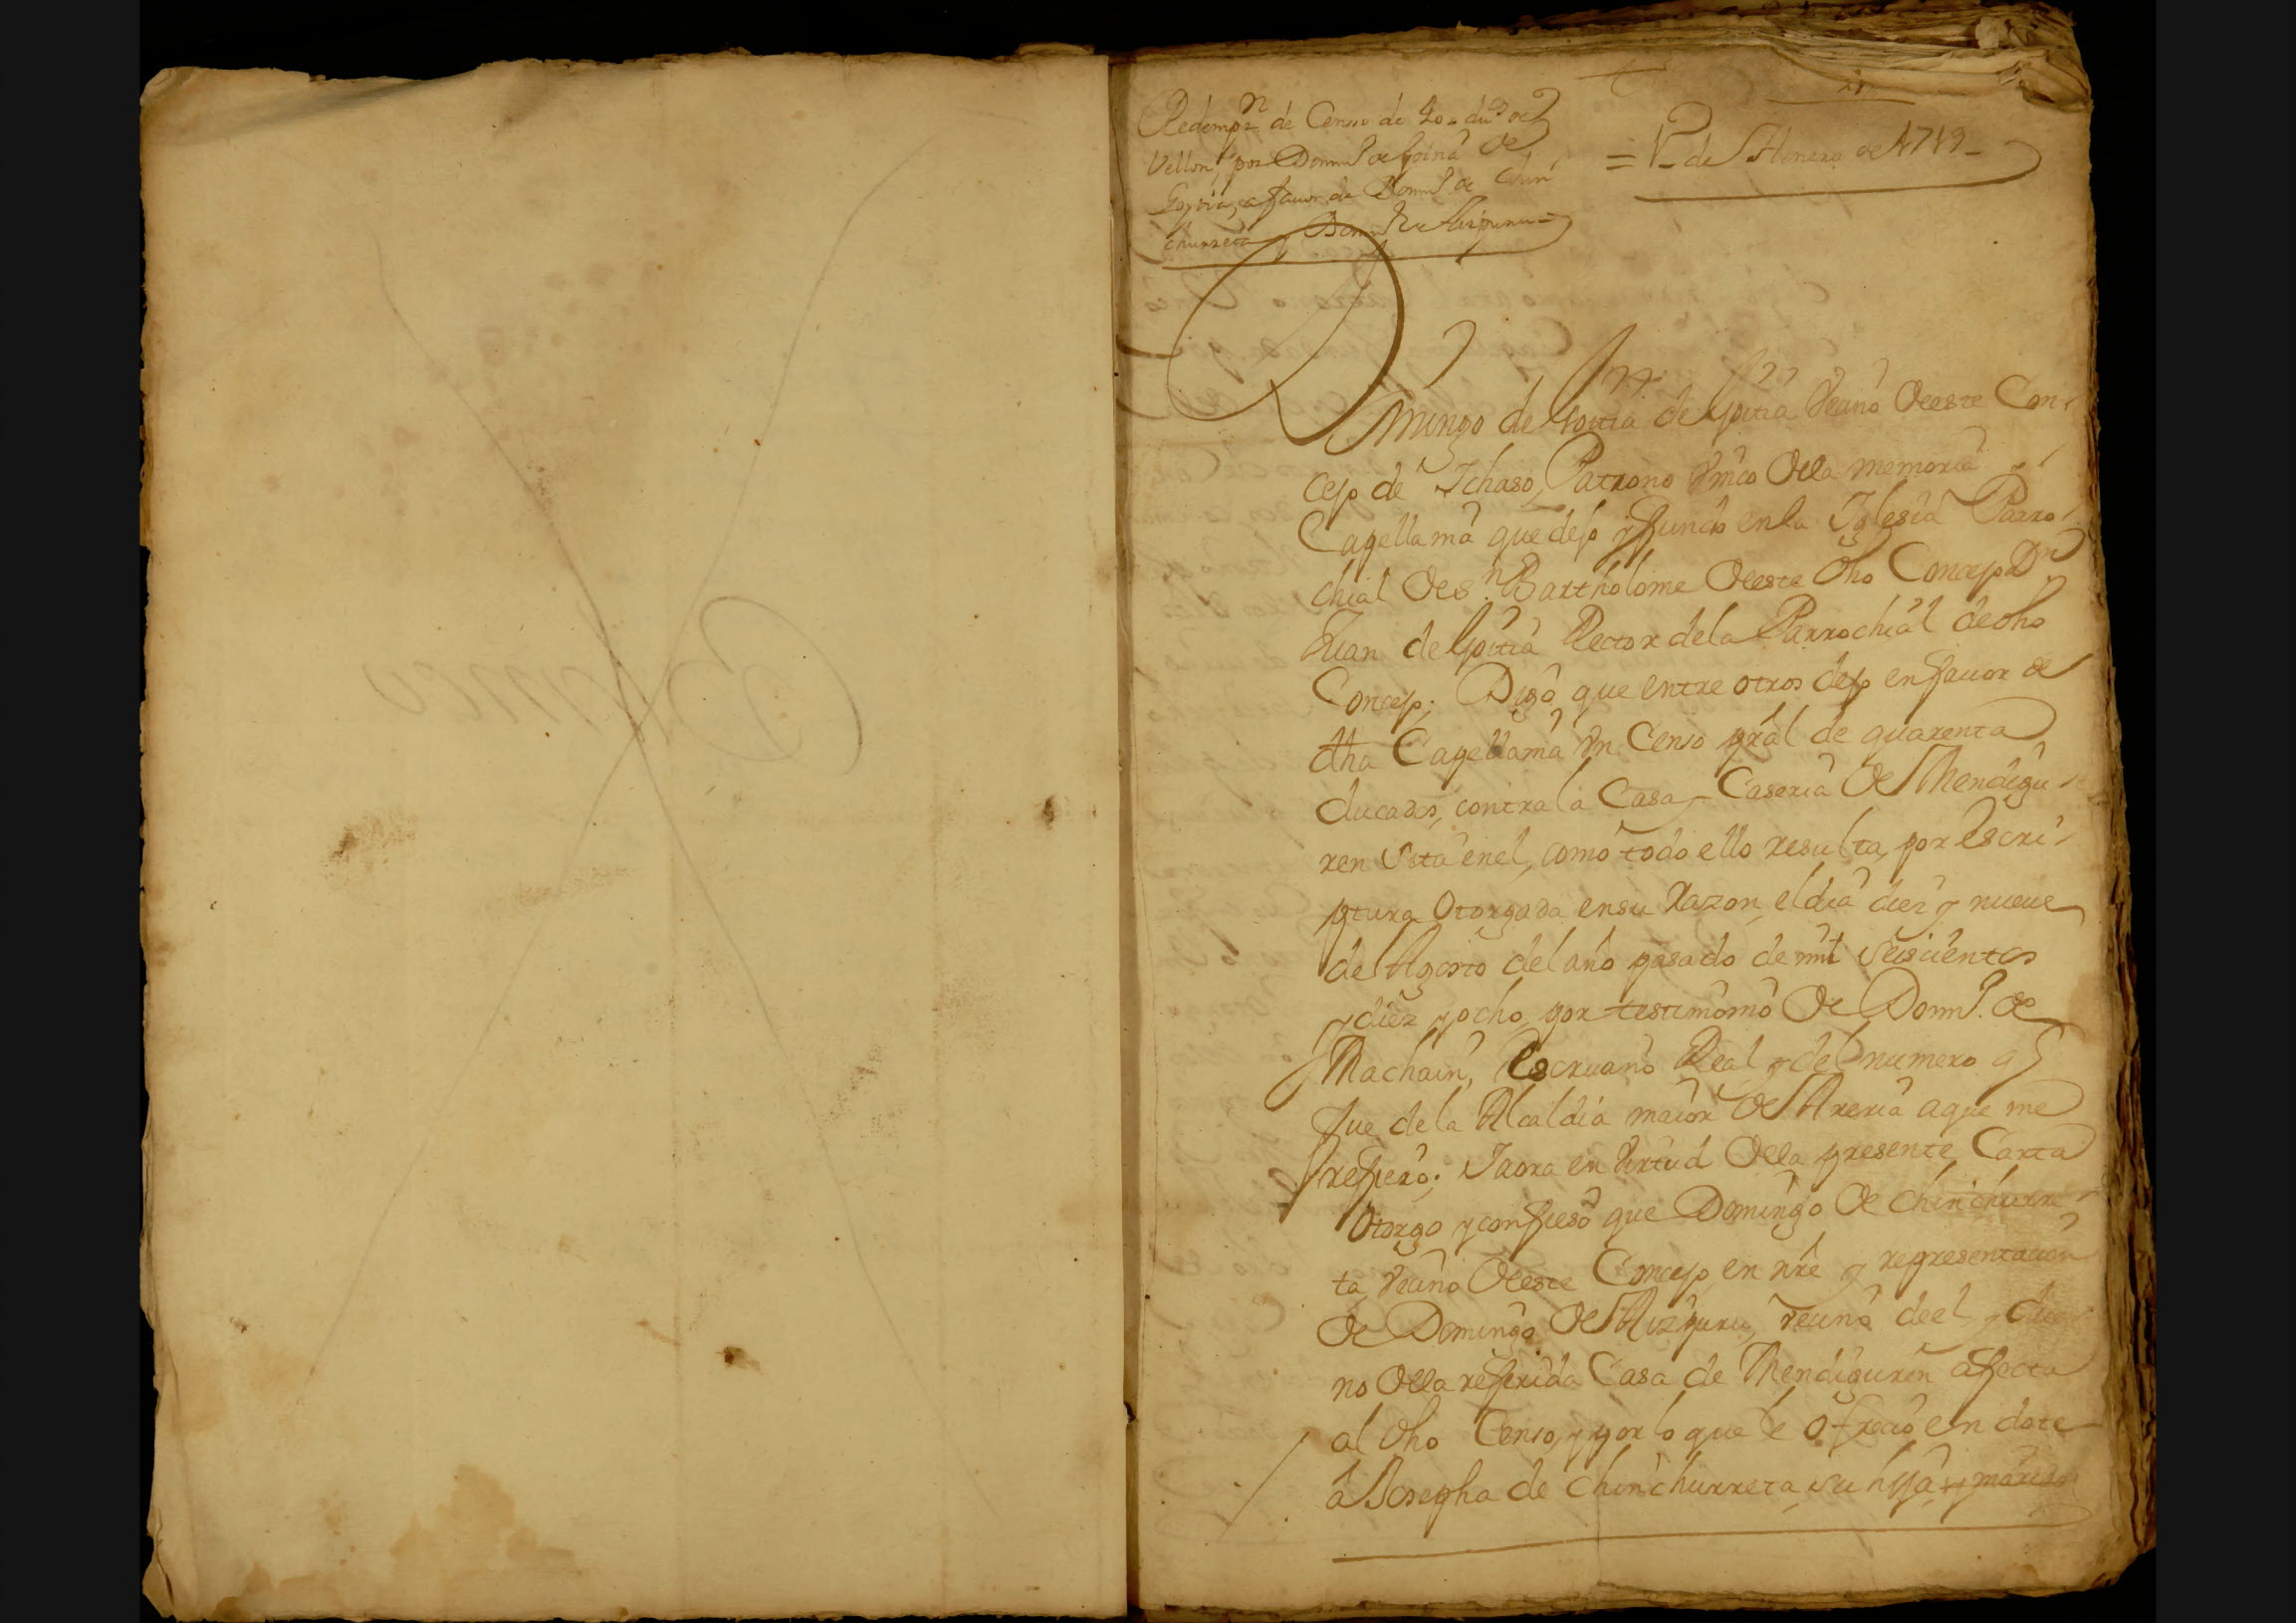 Redempon de Censo de 40 dus de
Vellon, por Domgo de Goitia de
Goytia, a favor de Domgo de Chin
churreta y Domgo de Aizpuru =
= 1 de Henero de 1749 =
Domingo de Goitia de Goitia Vecino deeste Con
cejo de Ichaso, Patrono Vnico dela memoria y
Capellania que dejo y fundo en la Iglesia Parro
chial de Sn Bartholome deeste dho Concejo Dn
Juan de Goitia Rector dela Parrochial de dho
Concejo; Digo, que entre otros dejo en favor de
dha Capellania Vn Censo pral de quarenta
ducados, contra la Casa y Caseria de Mendigu
ren sita en el, como todo ello resulta, por Escri
ptura Otorgada en su Razon, el dia diez y nueue
de Agosto del año pasado de mil seiscientos
y diez y ocho, por testimonio de Domgo de
Machain, Escriuano Real y del numero q
fue de la Alcaldia maior de Areria aque me
refiero; Iaora en Virtud dela presente Carta
Otorgo y confieso que Domingo de Chinchurre
ta, Vecino deeste Concejo, en nre y representacion
de Domingo de Aizpuru, vecino de el y due
no dela referida Casa de Mendiguren afecta
al dho Censo, y por lo que le ofrecio en dote
â Josepha de Chinchurreta, su hija y marido